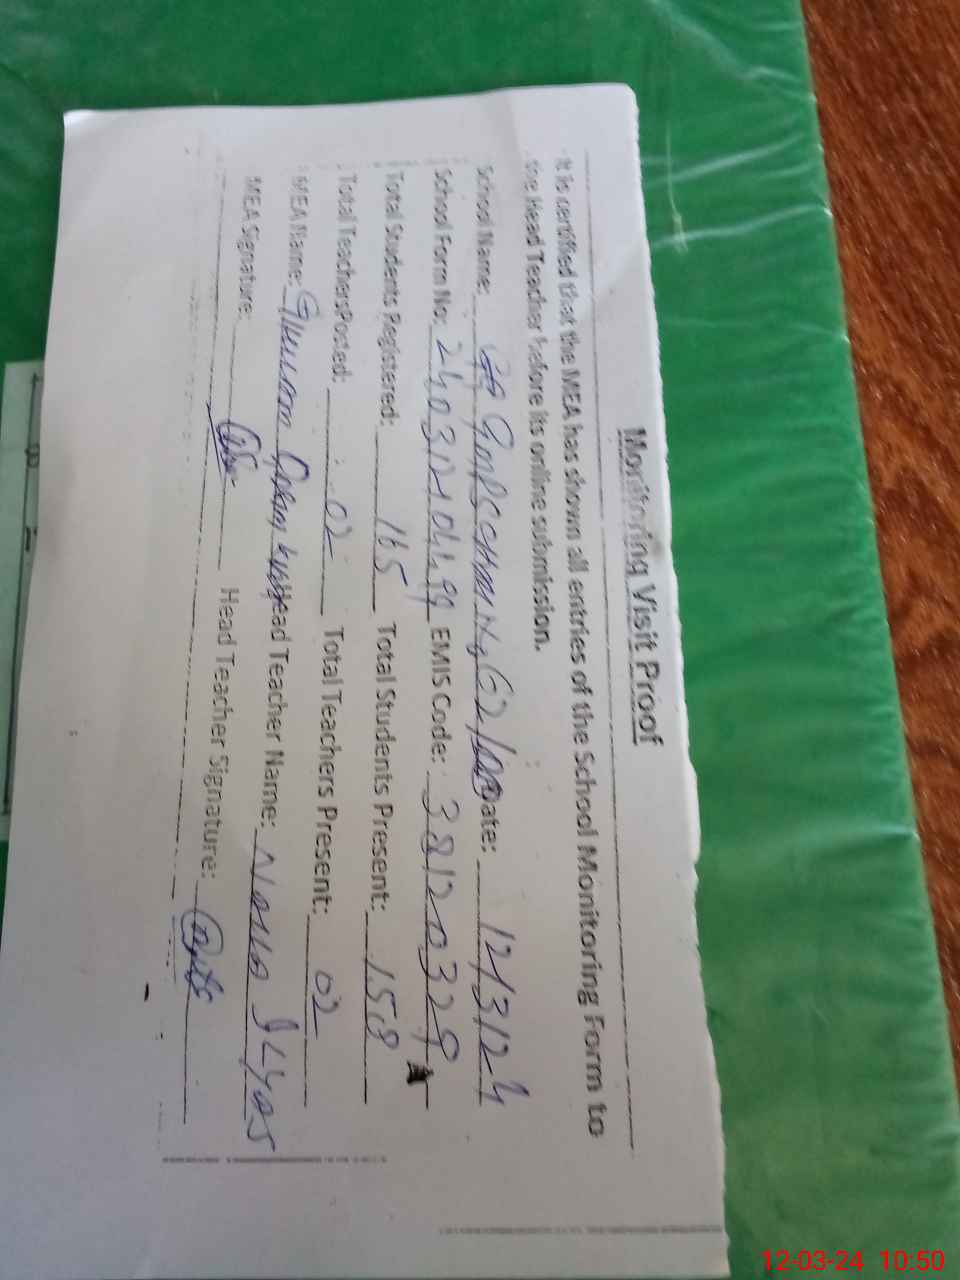 Monitoring Visit Proof
It is certified that the MEA has shown all entries of the School Monitoring Form to
the Head Teacher before its online submission.
School Name: GMPS Date: 12/3/24
School Form No: EMIS Code: 38120329
Total Students Registered: 165 Total Students Present: 158
Total TeachersPosted: 02 Total Teachers Present: 02
MEA Name: Head Teacher Name: Ilyas
MEA Signature: Head Teacher Signature:
12-03-24 10:50